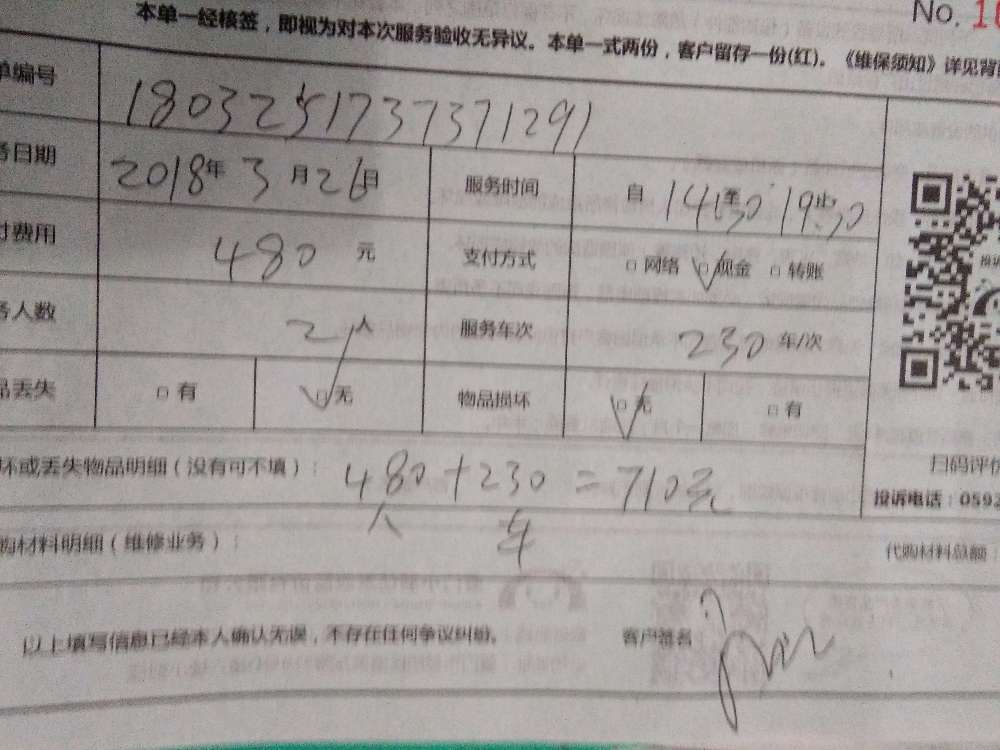 No. 1
本单一经核签，即视为对本次服务验收无异议。本单一式两份，客户留存一份(红)。《维保须知》详见背
单编号 1803251737371291
务日期 2018年3月26日 服务时间 自14:30至19:30止
付费用 480元 支付方式 □网络 □现金 □转账
务人数 2人 服务车次 230车/次
品丢失 □有 □无 物品损坏 □无 □有
坏或丢失物品明细（没有可不填）： 480+230=710元
人 车
扫码评价
投诉电话：0592
购材料明细（维修业务）： 代购材料总额：
以上填写信息已经本人确认无误，不存在任何争议纠纷。 客户签名